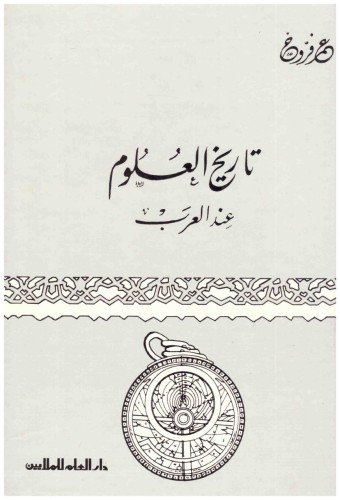 عمر فروخ
تاريخ العلوم
عند العرب
دار العلم للملايين